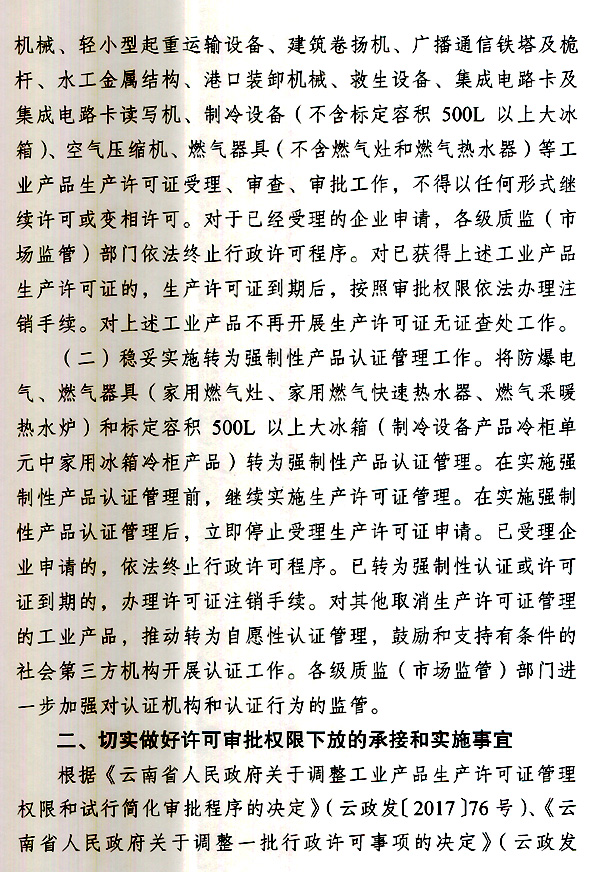 机械、轻小型起重运输设备、建筑卷扬机、广播通信铁塔及桅
杆、水工金属结构、港口装卸机械、救生设备、集成电路卡及
集成电路卡读写机、制冷设备（不含标定容积 500L 以上大冰
箱）、空气压缩机、燃气器具（不含燃气灶和燃气热水器）等工
业产品生产许可证受理、审查、审批工作，不得以任何形式继
续许可或变相许可。对于已经受理的企业申请，各级质监（市
场监管）部门依法终止行政许可程序。对已获得上述工业产品
生产许可证的，生产许可证到期后，按照审批权限依法办理注
销手续。对上述工业产品不再开展生产许可证无证查处工作。
（二）稳妥实施转为强制性产品认证管理工作。将防爆电
气、燃气器具（家用燃气灶、家用燃气快速热水器、燃气采暖
热水炉）和标定容积 500L 以上大冰箱（制冷设备产品冷柜单
元中家用冰箱冷柜产品）转为强制性产品认证管理。在实施强
制性产品认证管理前，继续实施生产许可证管理。在实施强制
性产品认证管理后，立即停止受理生产许可证申请。已受理企
业申请的，依法终止行政许可程序。已转为强制性认证或许可
证到期的，办理许可证注销手续。对其他取消生产许可证管理
的工业产品，推动转为自愿性认证管理，鼓励和支持有条件的
社会第三方机构开展认证工作。各级质监（市场监管）部门进
一步加强对认证机构和认证行为的监管。
二、切实做好许可审批权限下放的承接和实施事宜
根据《云南省人民政府关于调整工业产品生产许可证管理
权限和试行简化审批程序的决定》（云政发〔2017〕76 号）、《云
南省人民政府关于调整一批行政许可事项的决定》（云政发